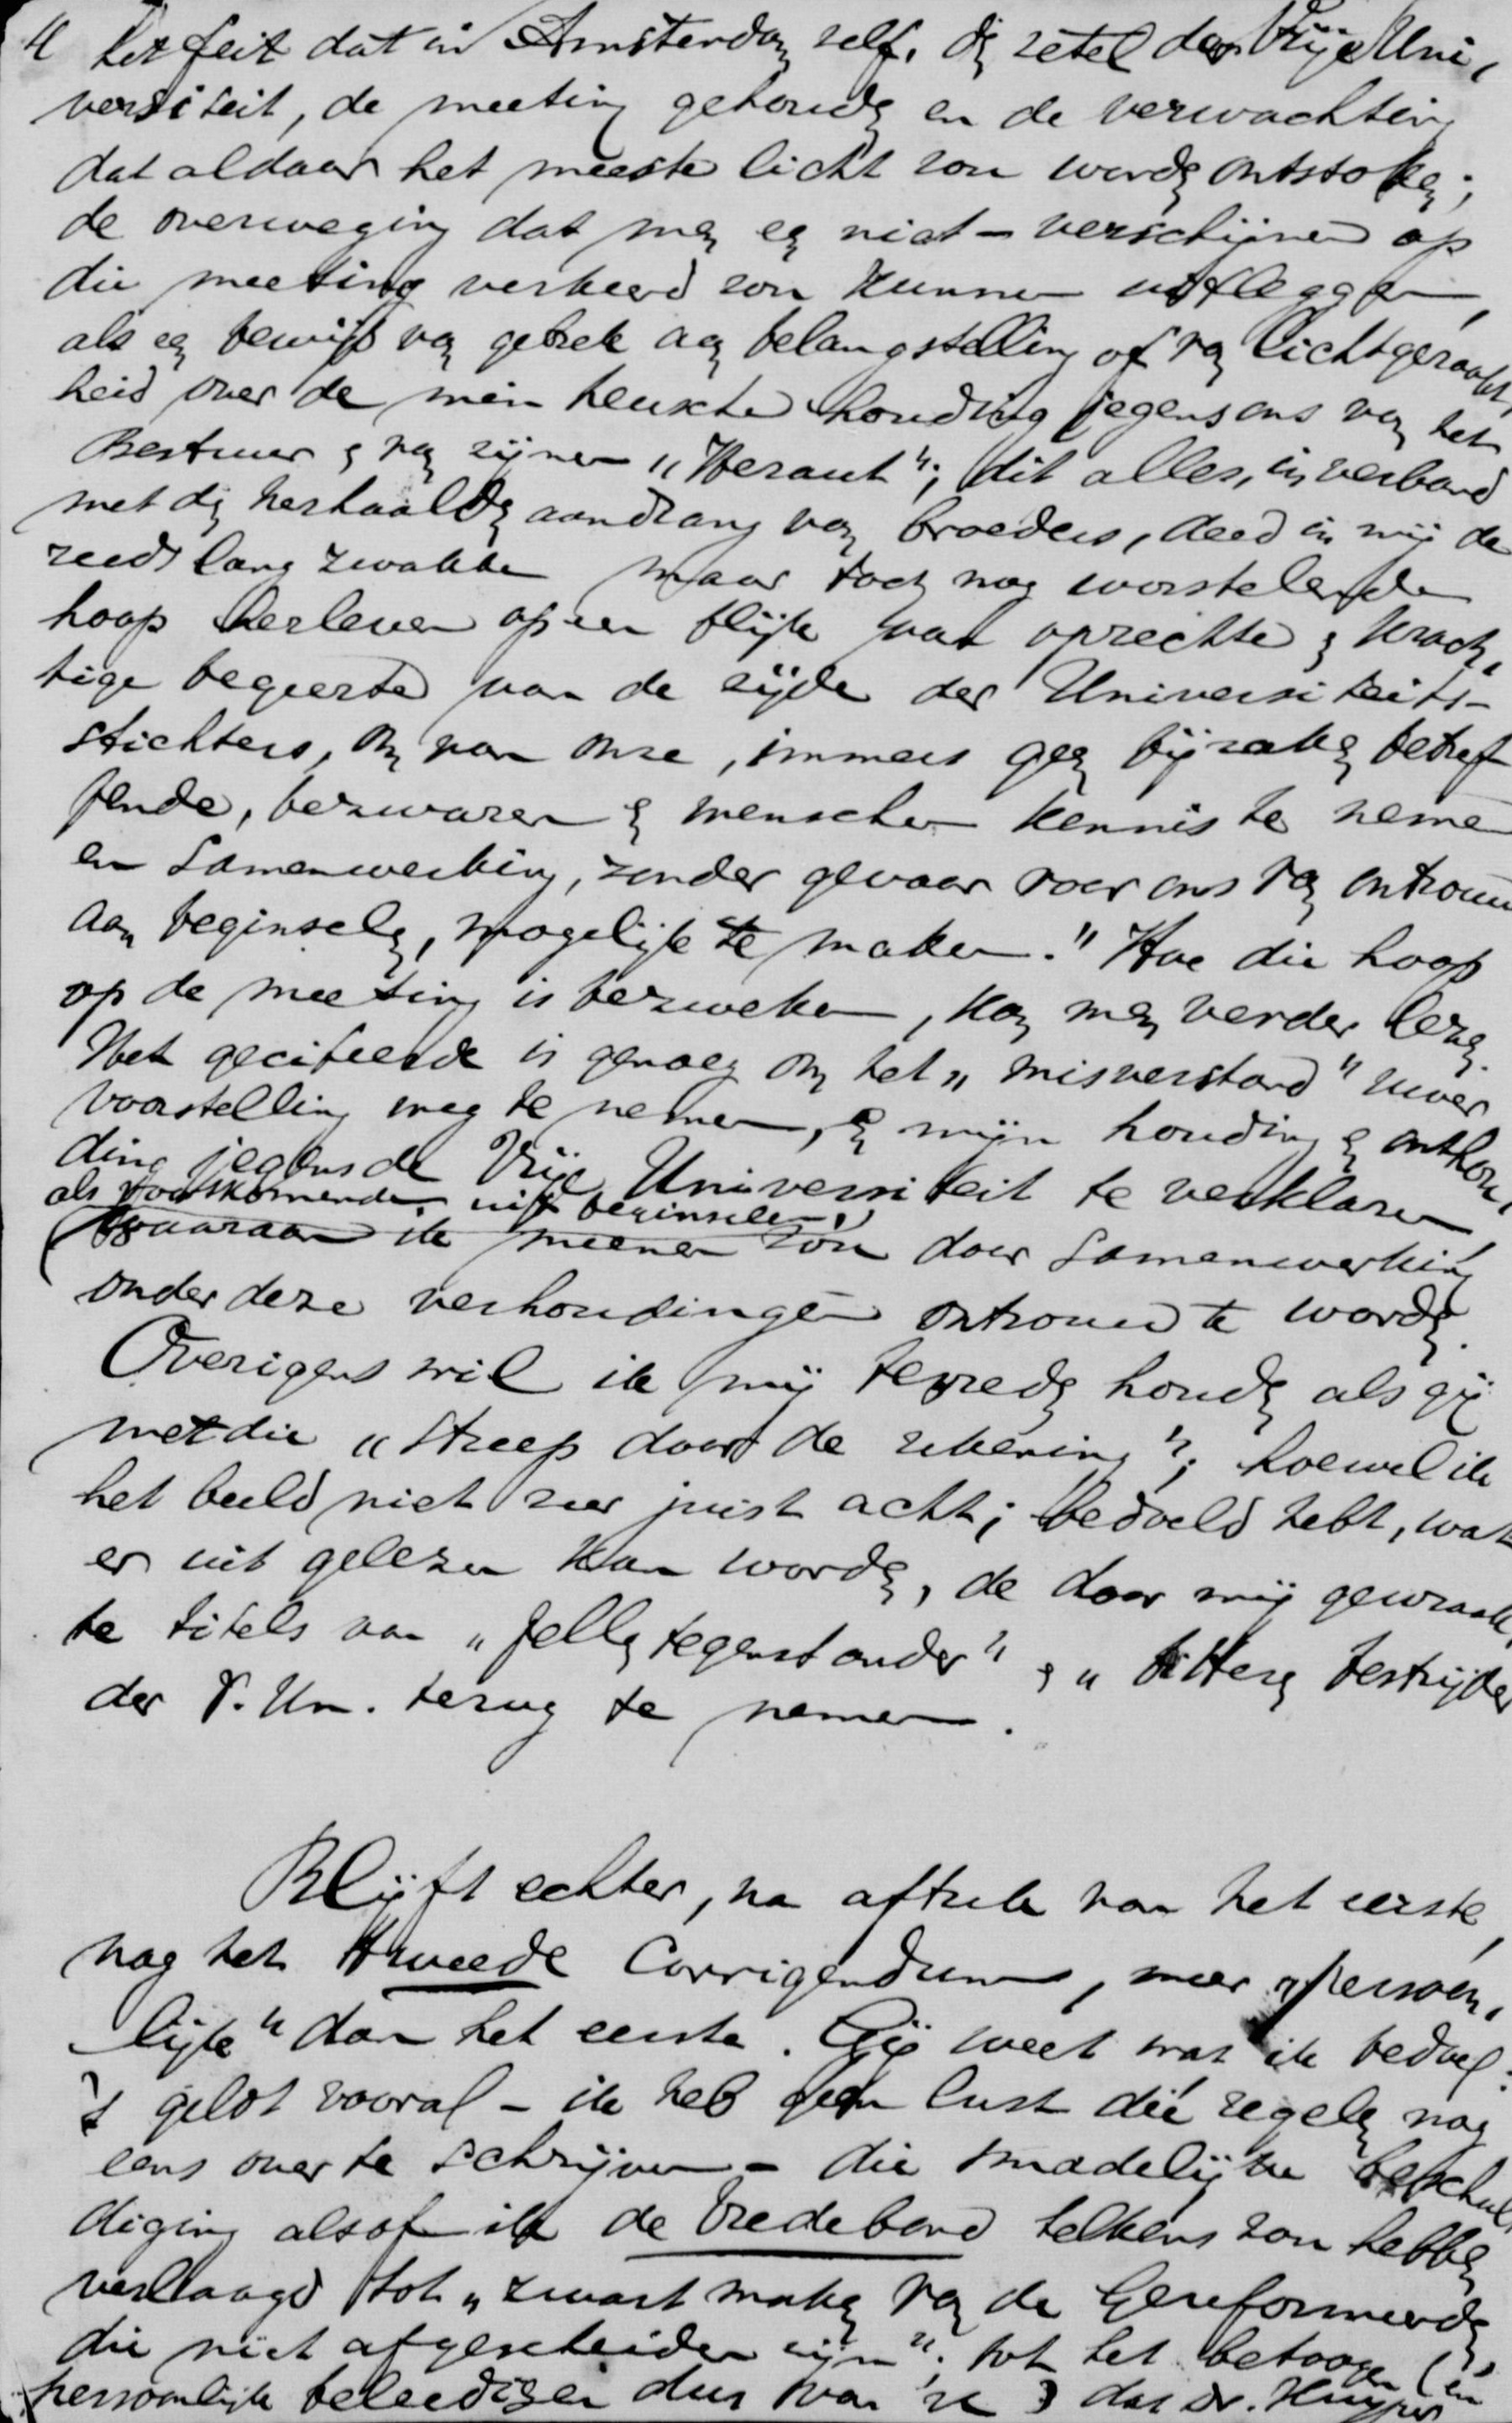 4 het feit dat in Amsterdam zelf, den zetel der Vrije Uni,
versiteit, de meeting gehouden en de verwachting
dat aldaar het meeste licht zou worden ontstoken;
de overweging dat men een niet-verschijnen op
die meeting verkeerd zou kunnen uitleggen,
als een bewijs van gebrek aan belangstelling of van lichtgeraakt,
heid over de min heusche houding jegens ons van het
Bestuur & van zijnen „Heraut"; dit alles, in verband
met den herhaalden aandrang van broeders, deed in mij de
reeds lang zwakke maar toch nog worstelende
hoop herleven op een blijk van oprechte & krach,
tige begeerte van de zijde der Universiteits-
stichters, om van onze, immers geen bijzaken betref
fende, bezwaren & menschen kennis te nemen
en samenwerking, zonder gevaar voor ons van ontrouw
aan beginselen, mogelijk te maken." Hoe die hoop
op de meeting is bezweken, kan men verder lezen.
Het geciteerde is genoeg om het „misverstand" uwer
voorstelling weg te nemen, & mijn houding & onthou,
ding jegens de Vrije Universiteit te verklaren
als voortkomende uit beginselen,
waaraan ik meenen zou door samenwerking
onder deze verhoudingen ontrouw te worden.
Overigens wil ik mij tevreden houden als gij
met die „streep door de rekening"; hoewel ik
het beeld niet zeer juist acht; bedoeld hebt, wat
er uit gelezen kan worden, de door mij gewraak,
te titels van „fellen tegenstander" & „bitteren bestrijder
der V. Un. terug te nemen.
Blijft echter, na aftrek van het eerste,
nog het tweede Corrigendum, meer „persoon,
lijk" dan het eerste. Gij weet wat ik bedoel:
't geldt vooral - ik heb geen lust die regelen nog
eens over te schrijven - die smadelijke beschul,
diging alsof ik de Vredebond telkens zou hebben
verlaagd tot „zwart maken van de Gereformeerden,
die niet afgescheiden zijn"; tot het betoogen (en
persoonlijk beleedigen dus van 'n) dat Dr. Kuyper